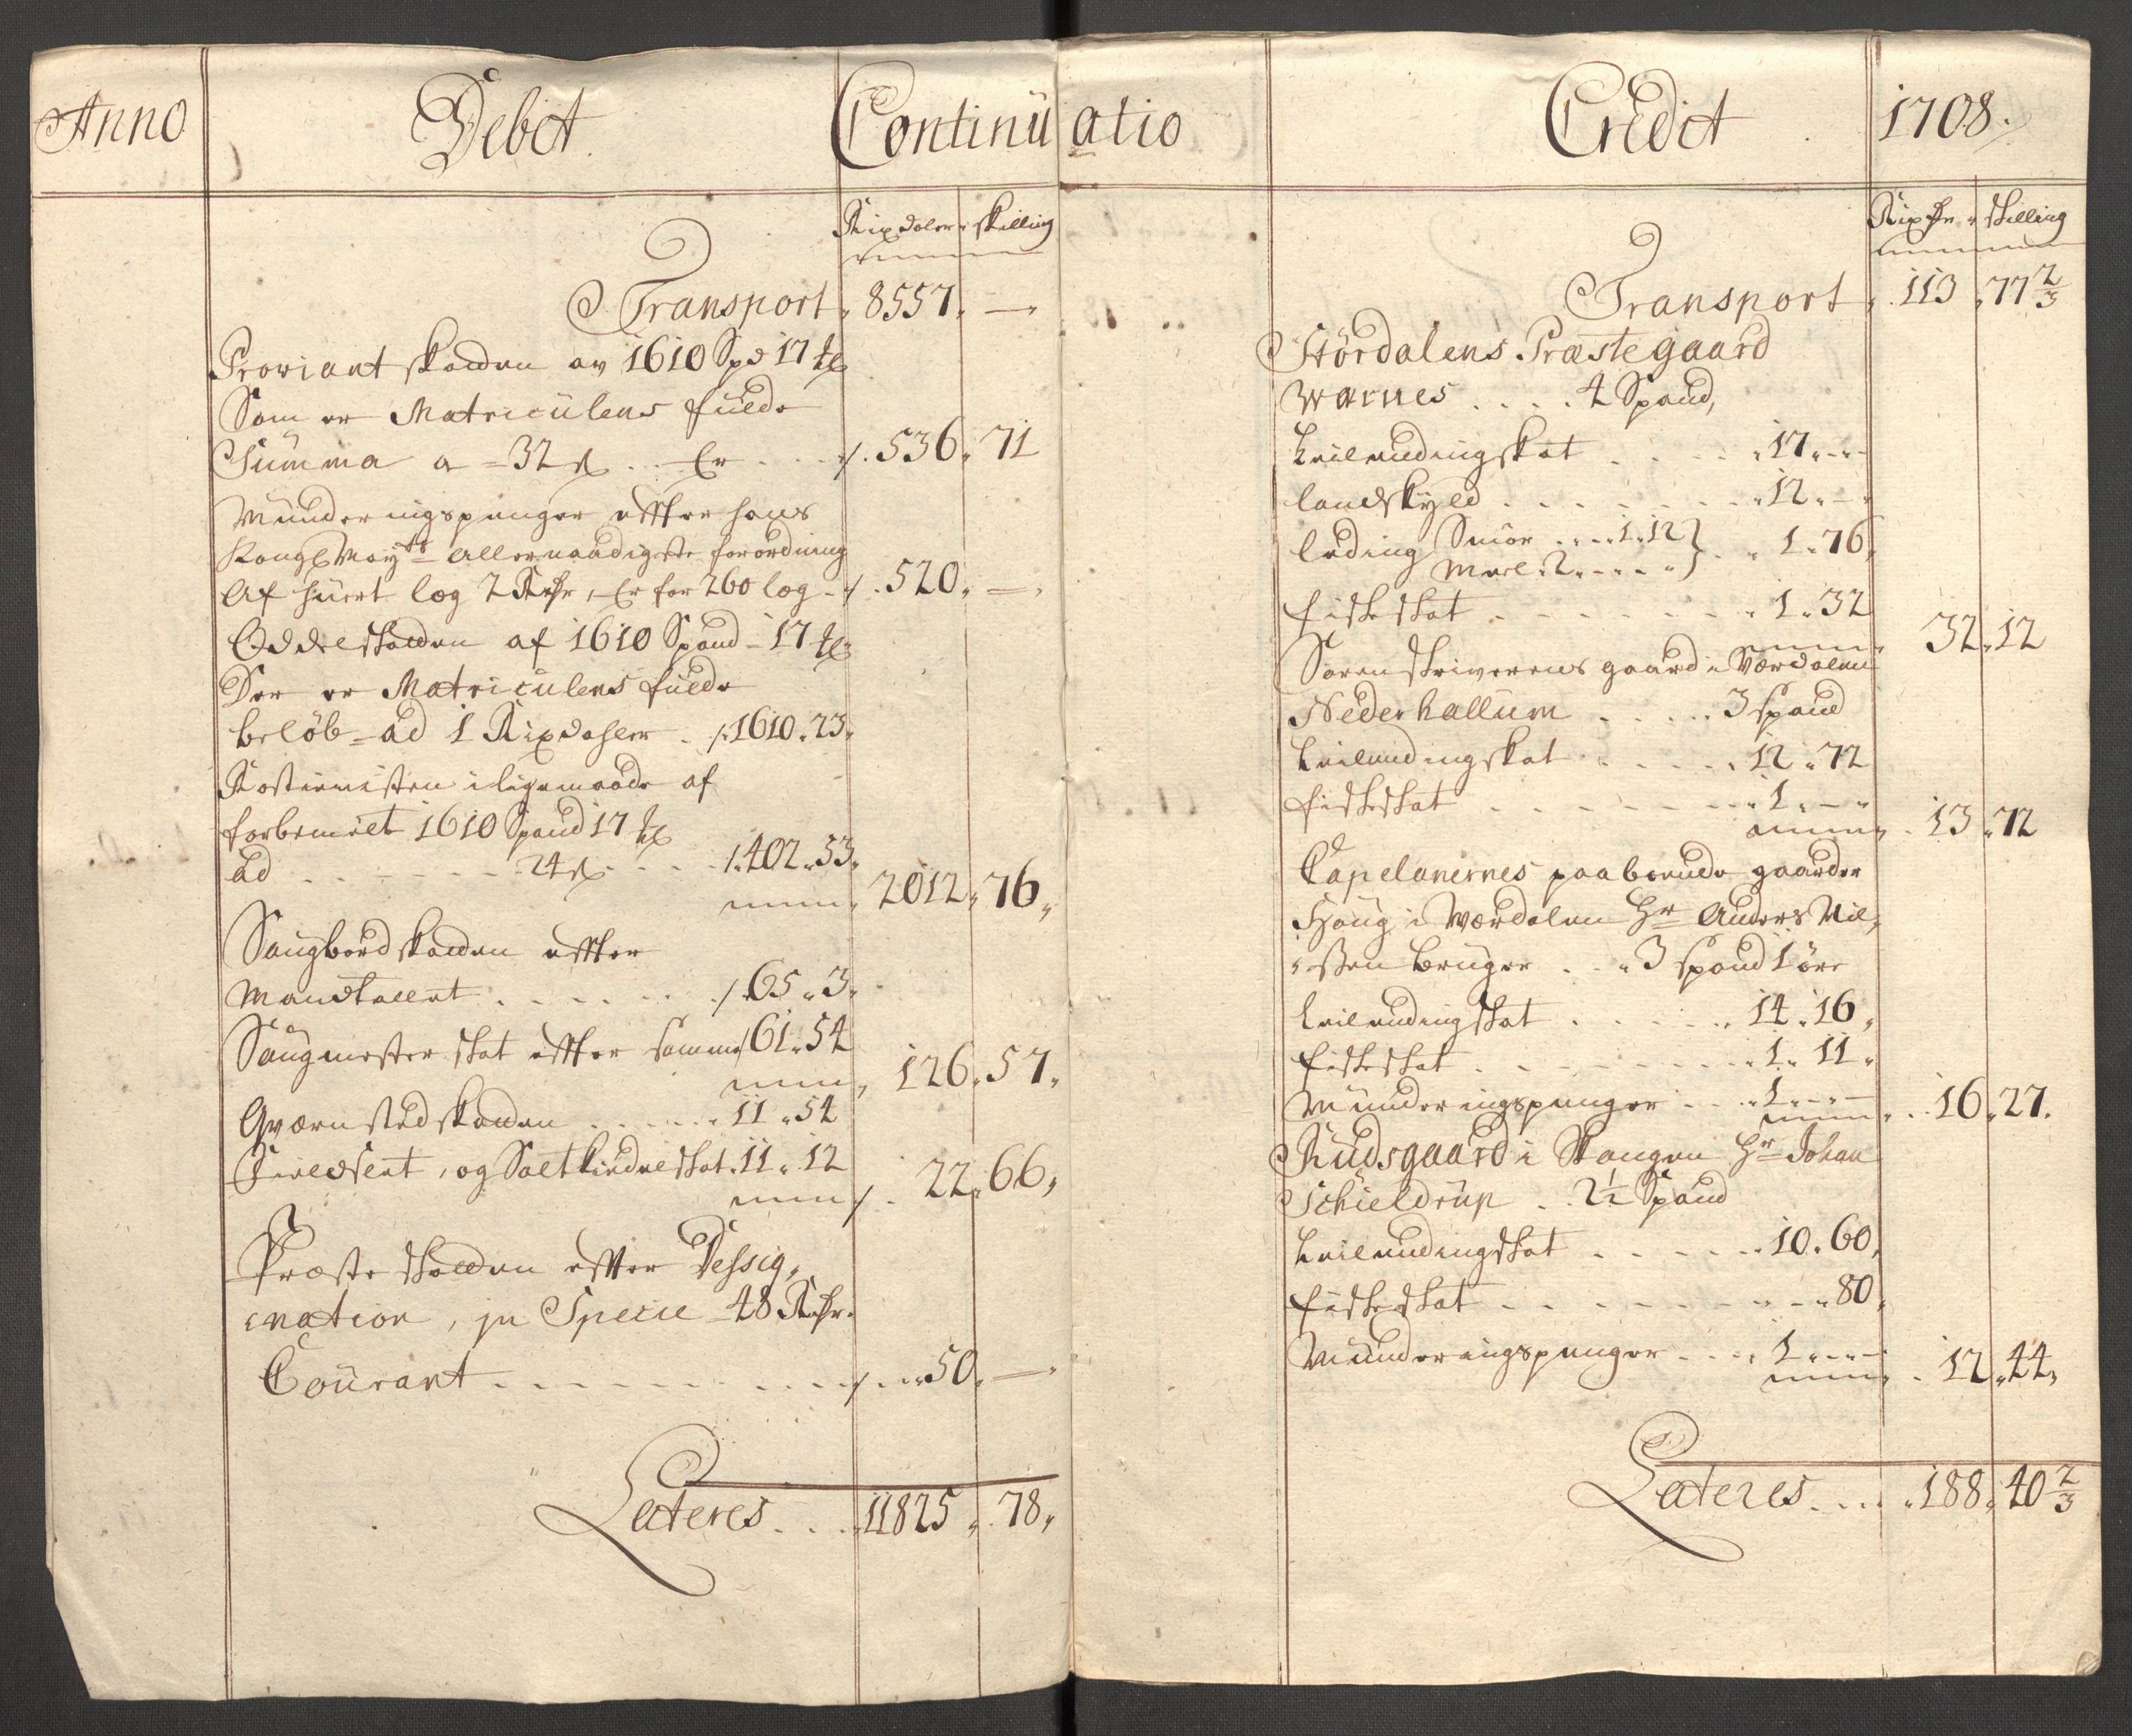 Anno Debet Continuatio Credit 1708.
Rixdaler skilling
Transport 8557 —
Proviant skatten av 1610 Spd 17 
Som er Matriculens fulde
Summa a 32 ß .. Er .. 536 71
Munderingspenger effter hans
Kongl May:ts allernaadigste forordning
Af huert læg 2 Rdr, Er for 260 læg 520 —
Oddelskatten af 1610 Spand 17 
Der er Matriculens fulde
beløb ad 1 Rixdahler 1610. 23
Rostieniisten i ligemaade af
forbemelt 1610 Spand 17
ad 24 ß 402. 53
2012. 76
Saugbordskatten effter
Mandtallet 65. 3
Saugmester skat effter samme 61. 54
126. 57
Qværnstedskatten 11. 54
11. 12
22. 66
Præste skatten effter Dessig-
nation, in Specie 48 Rdr.
Courant 50 —
Lateres 11825. 78
Rixdr skilling
Transport 113 77 2/3
Stördalens Præstegaard
Warnes .... 4 Spand,
Leilendingskat 17. -
landskyld 12. -
leding Smör 1. 12
Meel 2 - 1. 76
fiskeskat 1. 32
32. 12
Sorenskriverens gaard i Værdalen
Nederhallum 3 spand
Leilendingskat 12. 72
fiskeskat 1. -
13. 72
Capelanernes paaboende gaarder
Houg i Værdalen Hr Anders Nil-
sßen bruger 3 spand 1 øre
Leilendingskat 14. 16
fiskeskat 1. 11
Munderingspenger 1. -
16. 27.
Rudsgaard i Skongen Hr Johan
Schieldrup .. 2 1/2 Spand
Leilendingskat 10. 60
fiskeskat 80
Munderingspenger 1. -
12. 44
Lateres 188. 40 2/3